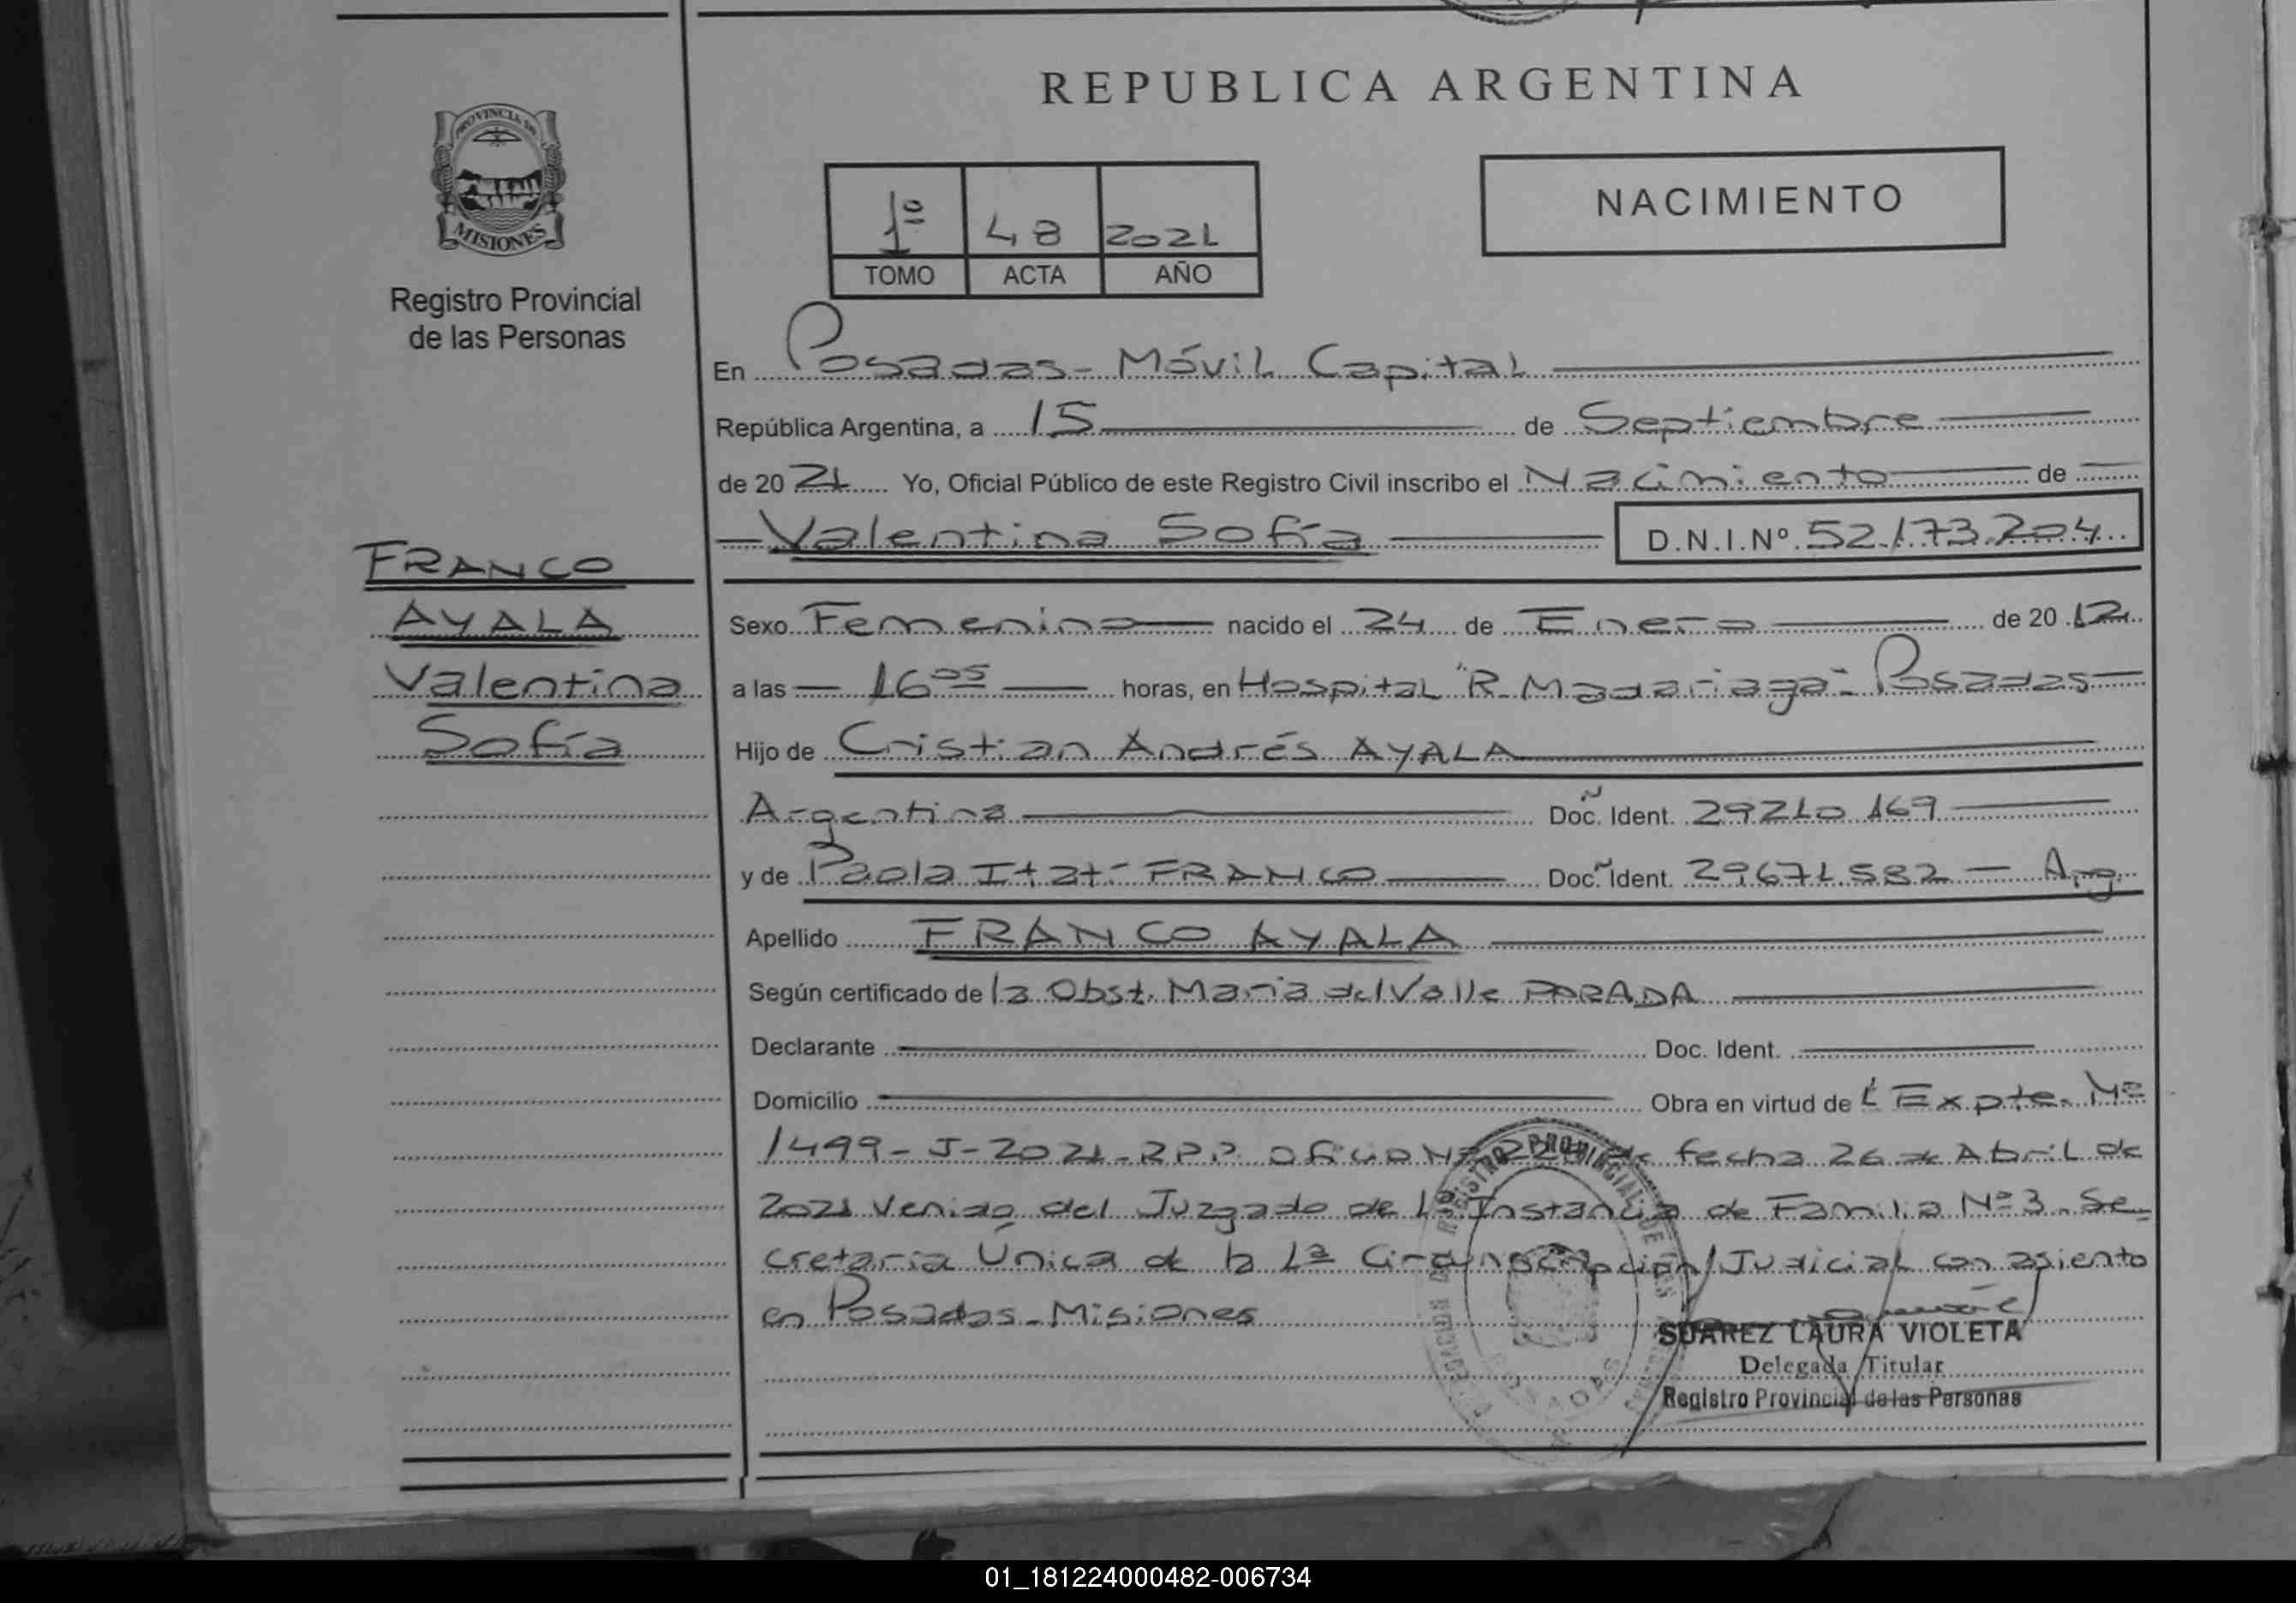 REPUBLICA ARGENTINA
PROVINCIA DE
MISIONES
Registro Provincial
de las Personas
1º 48 2021
TOMO ACTA AÑO
NACIMIENTO
En Posadas - Móvil Capital
República Argentina, a 15 de Septiembre
de 2021 Yo, Oficial Público de este Registro Civil inscribo el Nacimiento de
Valentina Sofía D.N.I.Nº 52.173.204
FRANCO
AYALA
Valentina
Sofía
Sexo Femenino nacido el 24 de Enero de 2012
a las 16 05 horas, en Hospital "R. Madariaga" - Posadas
Hijo de Cristian Andrés AYALA
Argentina Doc. Ident. 29210169
y de Paola Itatí FRANCO Doc. Ident. 29671582 - Arg
Apellido FRANCO AYALA
Según certificado de la Obst. María del Valle PARADA
Declarante Doc. Ident.
Domicilio Obra en virtud de Expte. Nº
1499-J-2021-RPP Oficio Nº de fecha 26 de Abril de
2021 venido del Juzgado de 1ª Instancia de Familia Nº 3. Se-
cretaria Única de la 1ª Circunscripción Judicial con asiento
en Posadas - Misiones
SUAREZ LAURA VIOLETA
Delegada Titular
Registro Provincial de las Personas
01_181224000482-006734